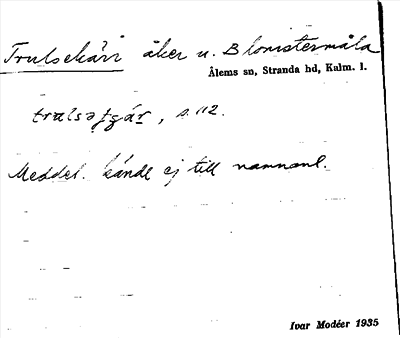 Trulsekärr åker u. Blomstermåla
Ålems sn, Stranda hd, Kalm. l.
trulsəʃɟár, s. 112.
Meddel. kände ej till namnet.
Ivar Modéer 1935